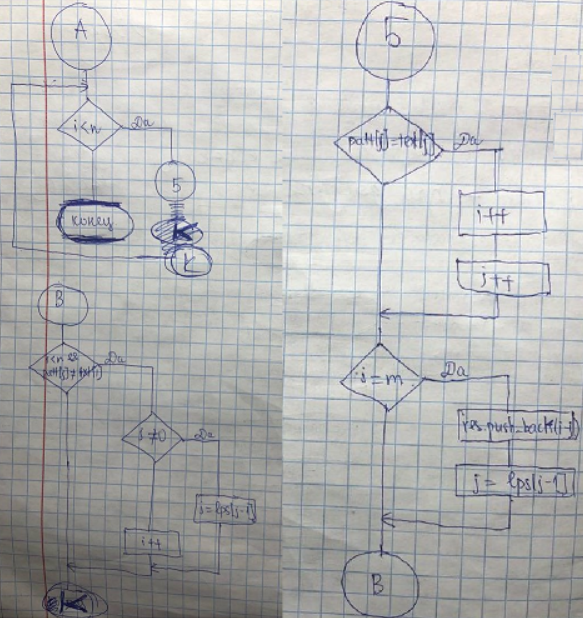 A
i<n
Да
5
конец
K
K
B
i<n &&
patt[j]≠text[i]
Да
j≠0
Да
j=lps[j-1]
i++
K
5
patt[j]=text[i]
Да
i++
j++
j=m
Да
res.push_back(i-j)
j = lps[j-1]
B